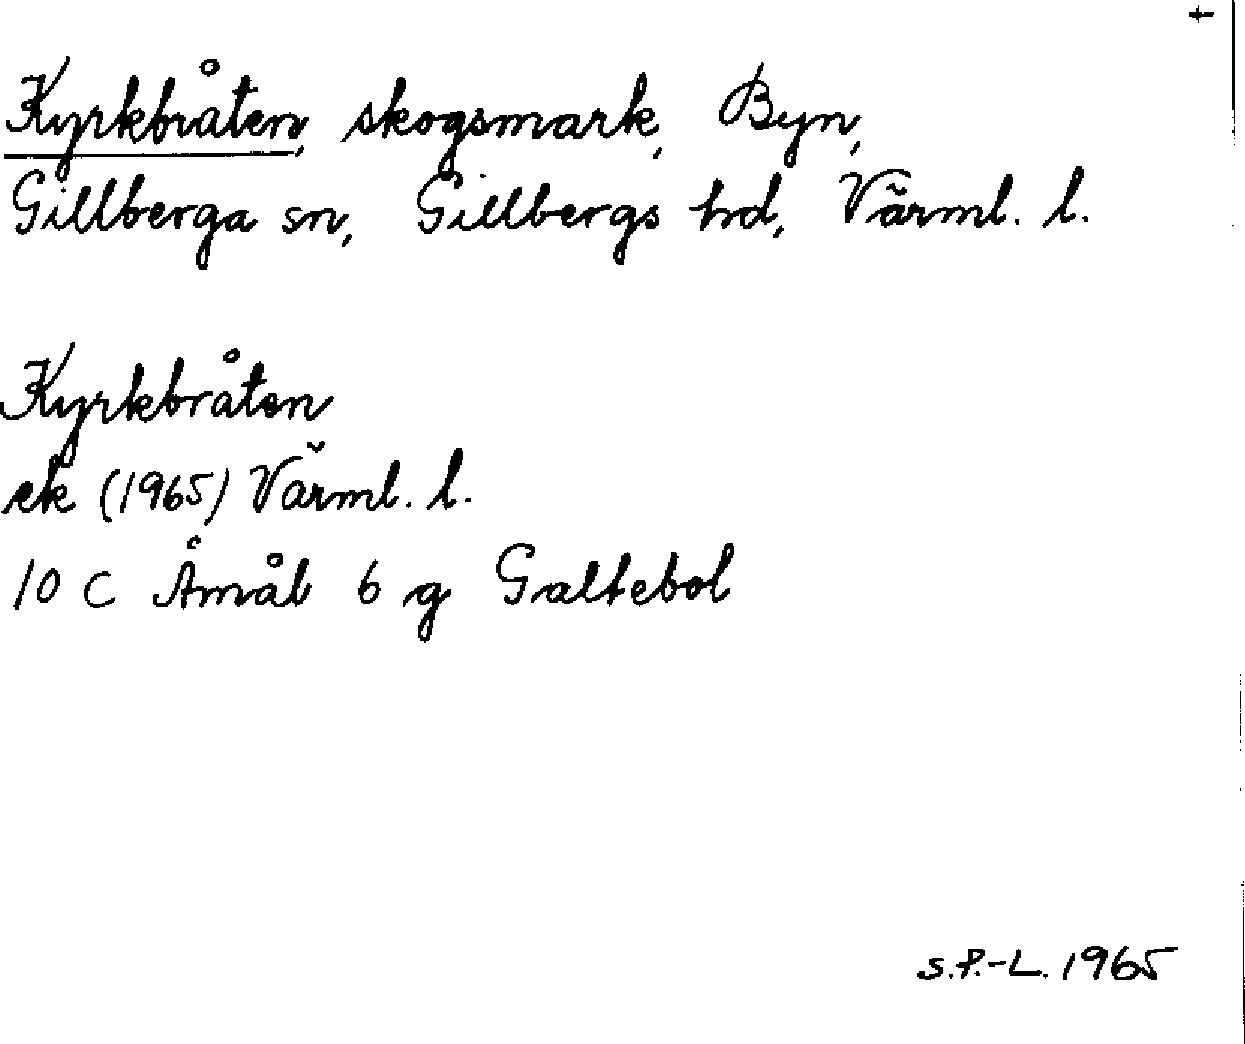 Kyrkbråten, skogsmark, Byn,
Gillberga sn, Gillbergs hd, Värml. l.
Kyrkbråten
ek (1965) Värml. l.
10 C Åmål 6 g Galtebol
S.P.-L. 1965